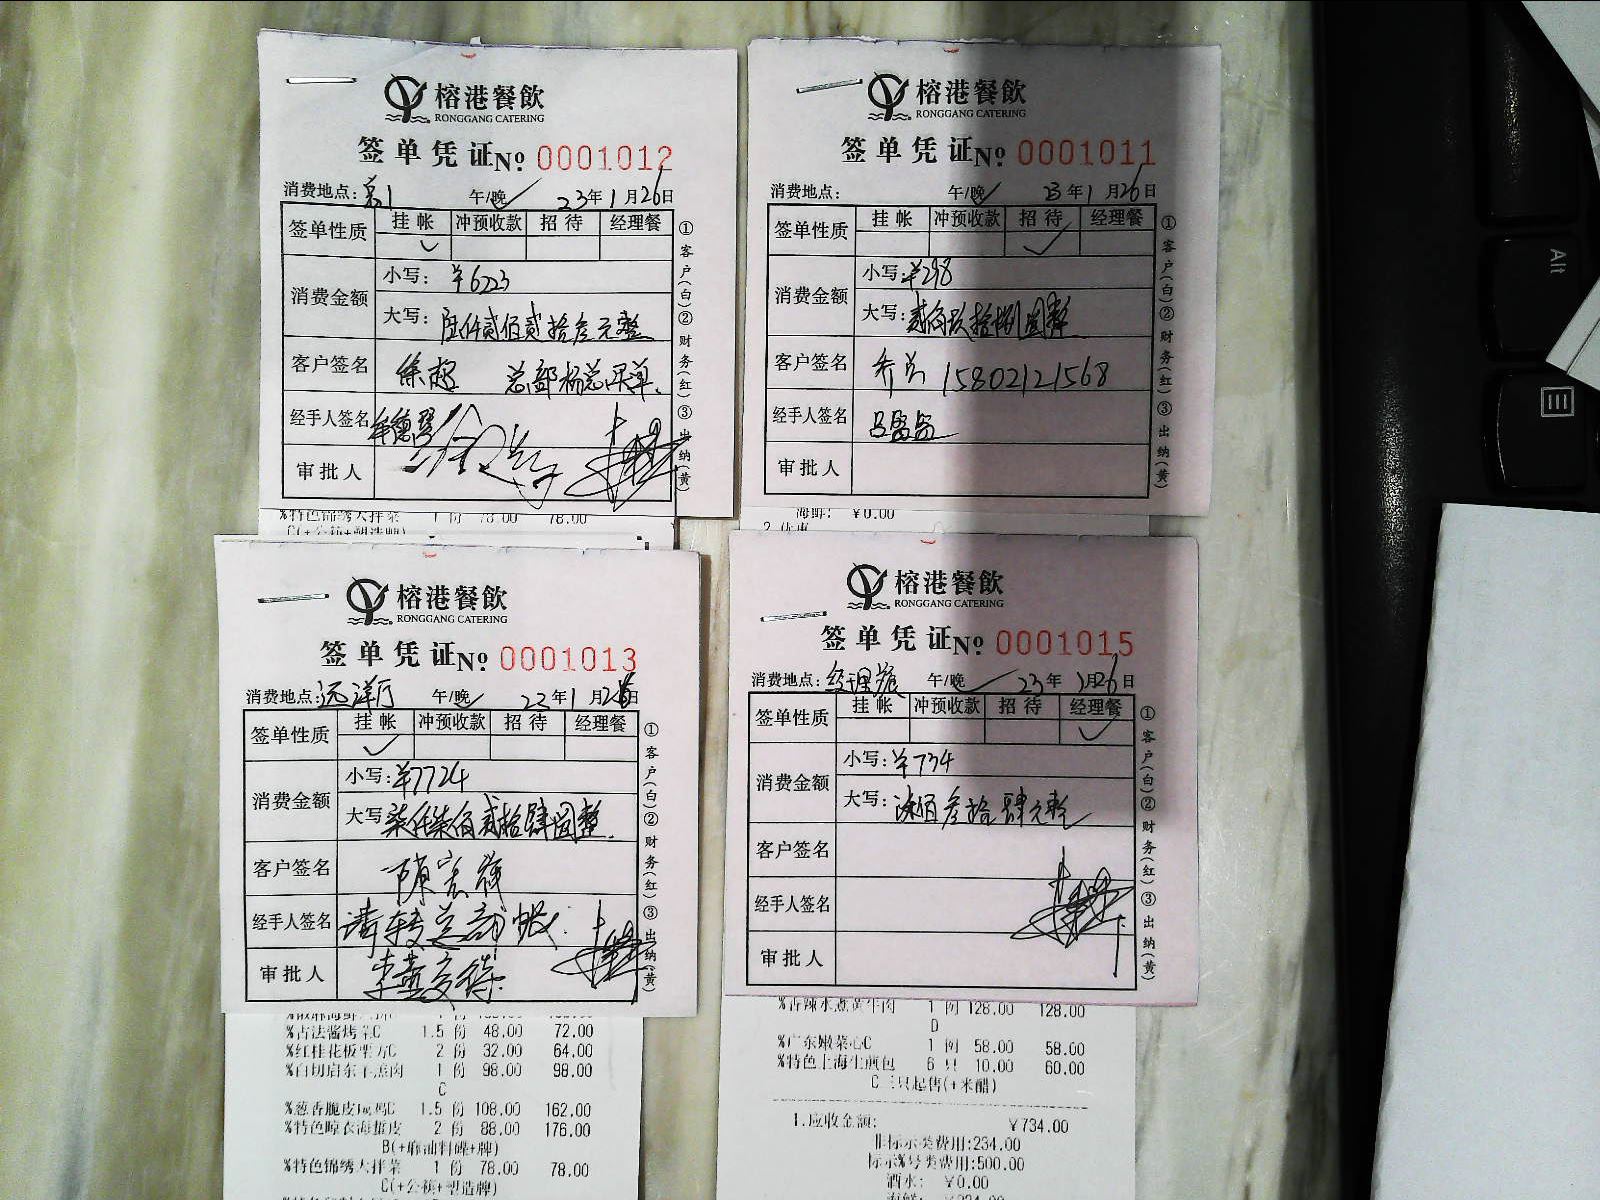 榕港餐飲
RONGGANG CATERING
签单凭证 No 0001012
消费地点: 午/晚 23年1月26日
签单性质 挂帐 冲预收款 招待 经理餐
消费金额 小写: ¥6223
大写: 陆仟贰佰贰拾叁元整
客户签名 徐超 总部杨总买单.
经手人签名
审批人
①客户(白)②财务(红)③出纳(黄)
%特色锦绣大拌菜 1 份 78.00 78.00
C(+公筷+塑造牌)
榕港餐飲
RONGGANG CATERING
签单凭证 No 0001011
消费地点: 午/晚 23年1月26日
签单性质 挂帐 冲预收款 招待 经理餐
消费金额 小写: ¥298
大写: 贰佰玖拾捌圆整
客户签名 15802121568
经手人签名
审批人
①客户(白)②财务(红)③出纳(黄)
海鲜: ¥0.00
榕港餐飲
RONGGANG CATERING
签单凭证 No 0001013
消费地点: 远洋厅 午/晚 23年1月26日
签单性质 挂帐 冲预收款 招待 经理餐
消费金额 小写: ¥7724
大写 柒仟柒佰贰拾肆圆整.
客户签名 陳宏祥
经手人签名 请转总部帐.
审批人
①客户(白)②财务(红)③出纳(黄)
%古法酱烤 C 1.5 份 48.00 72.00
%红桂花板栗 C 2 份 32.00 64.00
%白切启东羊羔肉 1 份 98.00 98.00
C
%葱香脆皮 C 1.5 份 108.00 162.00
%特色晾衣海蜇皮 2 份 88.00 176.00
B(+麻油料碟+牌)
%特色锦绣大拌菜 1 份 78.00 78.00
C(+公筷+塑造牌)
榕港餐飲
RONGGANG CATERING
签单凭证 No 0001015
消费地点: 经理餐 午/晚 23年1月26日
签单性质 挂帐 冲预收款 招待 经理餐
消费金额 小写: ¥734
大写: 柒佰叁拾肆元整
客户签名
经手人签名
审批人
①客户(白)②财务(红)③出纳(黄)
%香辣水煮黄牛肉 1 例 128.00 128.00
D
%广东嫩菜心C 1 例 58.00 58.00
%特色上海生煎包 6 只 10.00 60.00
C 三只起售(+米醋)
1.应收金额: ¥734.00
非标示类费用:234.00
标示%号类费用:500.00
酒水: ¥0.00
Alt